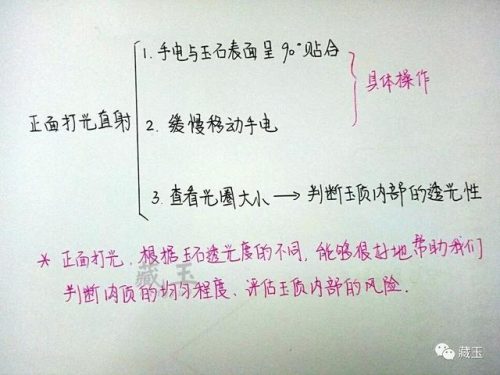 1. 手电与玉石表面呈90°贴合
具体操作
正面打光直射
2. 缓慢移动手电
3. 查看光圈大小 → 判断玉质内部的透光性
* 正面打光,根据玉石透光度的不同,能够很好地帮助我们
判断内质的均匀程度、评估玉质内部的风险.
藏玉
藏玉